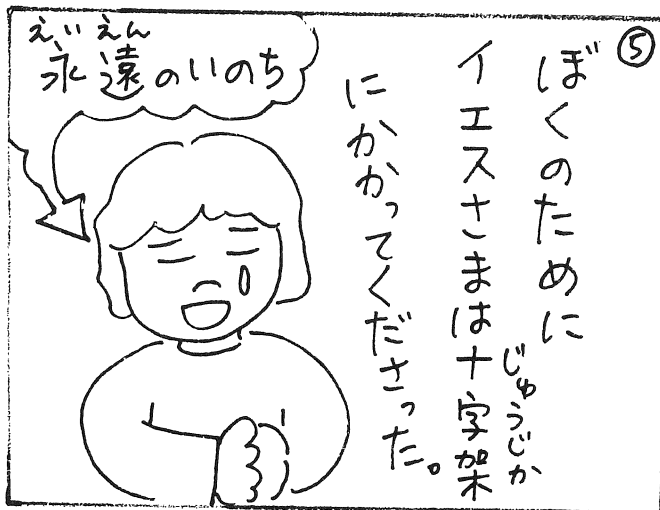 ⑤
ぼくのために
イエスさまは十字架
じゅうじか
にかかってくださった。
えいえん
永遠のいのち